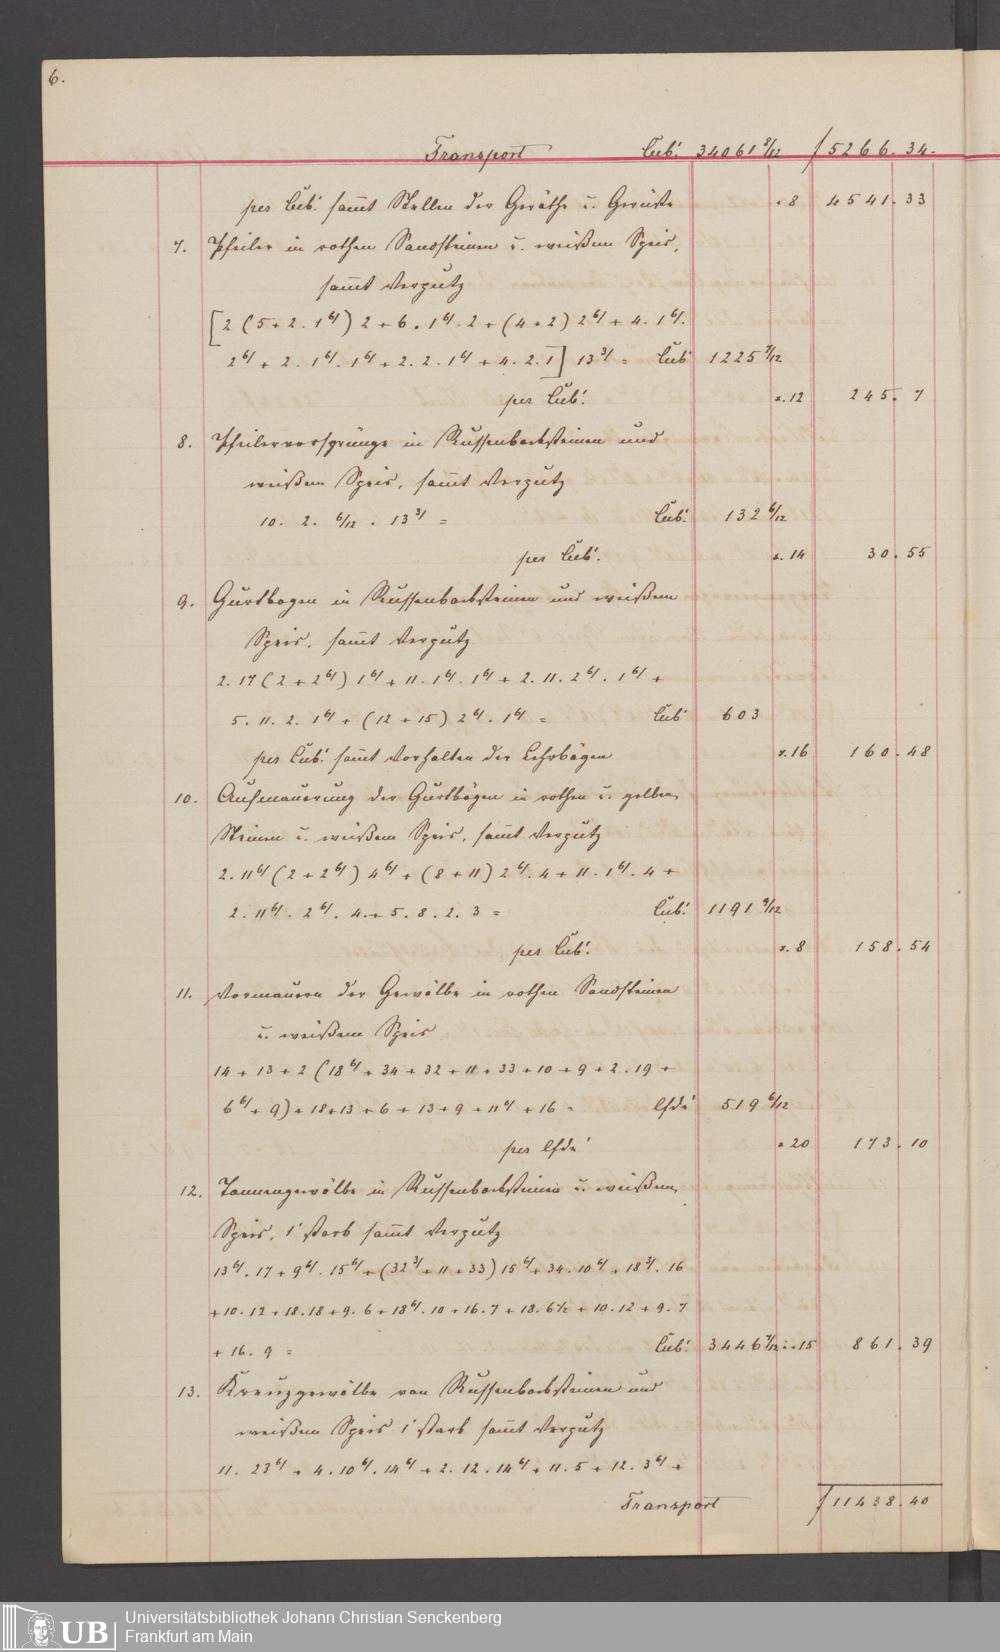 6.
Transport Cub.' 34061 8/12 f 5266.34.
per Cub.' sammt Stellen der Geräthe u. Gerüste " 8 4541.33
7. Pfeiler in rothen Sandsteinen u. weißem Speis,
sammt Verputz
[2 (5+2.1 6/) 2+6.1 6/.2+(4+2) 2 6/+4.1 6/.
2 6/+2.1 6/.1 6/+2.2.1 6/+4.2.1] 13 3/ = Cub' 1225 7/12
per Cub.' x.12 245.7
8. Pfeilervorsprünge in Russenbacksteinen und
weißem Speis, sammt Verputz
10. 2. 6/12. 13 3/ = Cub.' 132 6/12
per Cub.' x.14 30.55
9. Gurtbogen in Russenbacksteinen und weißem
Speis, sammt Verputz
2.17 (2+2 6/) 1 6/+11.1 6/.1 6/+2.11.2 6/.1 6/+
5.11.2.1 6/+(12+15) 2 6/.1 6/ = Cub' 603
per Cub.' sammt Vorhalten der Lehrbögen x.16 160.48
10. Aufmauerung der Gurtbögen in rothen u. gelben
Steinen u. weißem Speis, sammt Verputz
2.11 6/ (2+2 6/) 4 6/+(8+11) 2 6/.4+11.1 6/.4+
2.11 6/.2 6/.4.+5.8.2.3 = Cub.' 1191 9/12
per Cub.' x.8 158.54
11. Vormauern der Gewölbe in rothen Sandsteinen
u. weißem Speis
14+13+2 (18 6/+34+32+11+33+10+9+2.19+
6 6/+9)+18+13+6+13+9+11 6/+16 = lfde' 519 6/12
per lfde' " 20 173.10
12. Tonnengewölbe in Russenbacksteinen u. weißem
Speis, 1' stark sammt Verputz
13 6/.17+9 6/.15 6/+(32 3/+11+33) 15 6/+34.10 6/+18 3/.16
+10.12+18.18+9.6+18 6/.10+16.7+18.6 1/2+10.12+9.7
+16.9 = Cub.' 3446 7/12 "15 861.39
13. Kreuzgewölbe von Russenbacksteinen und
weißem Speis 1' stark sammt Verputz
11. 23 6/+4.10 6/.14 6/+2.12.14 6/+11.5+12.3 6/+
Transport f 11438.40
UB
Universitätsbibliothek Johann Christian Senckenberg
Frankfurt am Main